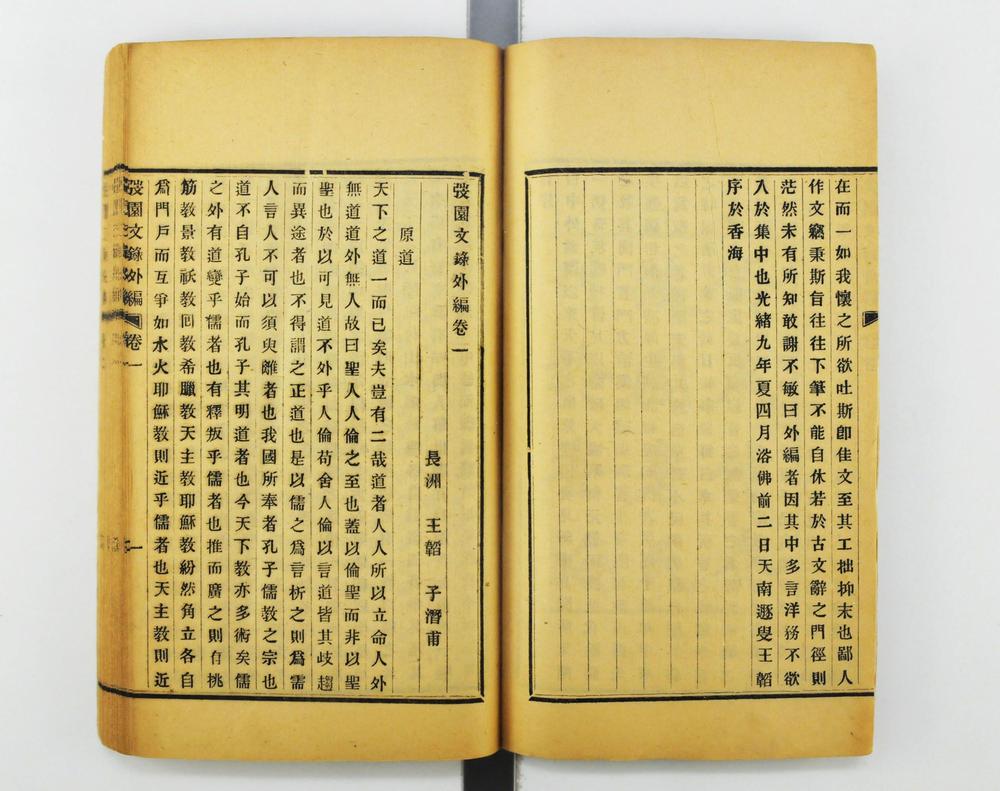 在而一如我懷之所欲吐斯卽佳文至其工拙抑末也鄙人
作文竊秉斯旨往往下筆不能自休若於古文辭之門徑則
茫然未有所知敢謝不敏曰外編者因其中多言洋務不欲
入於集中也光緒九年夏四月浴佛前二日天南遯叟王韜
序於香海
弢園文錄外編卷一
長洲 王韜 子潛甫
原道
天下之道一而已矣夫豈有二哉道者人人所以立命人外
無道道外無人故曰聖人人倫之至也蓋以倫聖而非以聖
聖也於以可見道不外乎人倫苟舍人倫以言道皆其歧趨
而異途者也不得謂之正道也是以儒之爲言析之則爲需
人言人不可以須臾離者也我國所奉者孔子儒教之宗也
道不自孔子始而孔子其明道者也今天下教亦多術矣儒
之外有道變乎儒者也有釋叛乎儒者也推而廣之則有挑
筋教景教祆教回教希臘教天主教耶穌教紛然角立各自
爲門戶而互爭如水火耶穌教則近乎儒者也天主教則近
弢園文錄外編 卷一 一